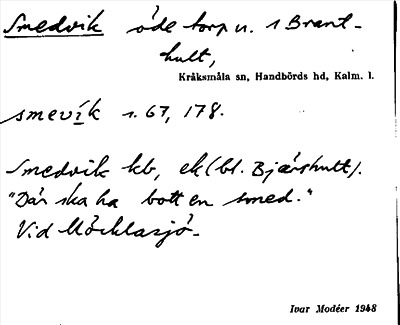 Smedvik öde torp u. 1 Brant-
hult,
Kråksmåla sn, Handbörds hd, Kalm. l.
smevik s. 67, 178.
Smedvik kb, ek (bl. Bjärshult).
"Där ska ha bott en smed."
Vid Möcklasjö.
Ivar Modéer 1948